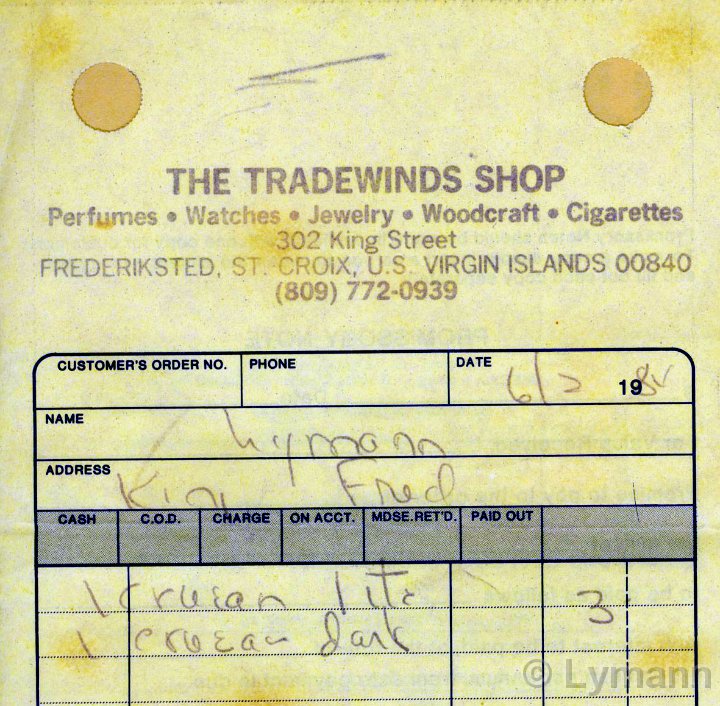 THE TRADEWINDS SHOP
Perfumes • Watches • Jewelry • Woodcraft • Cigarettes
302 King Street
FREDERIKSTED, ST. CROIX, U.S. VIRGIN ISLANDS 00840
(809) 772-0939
CUSTOMER'S ORDER NO. PHONE DATE 6/2 19
NAME Lymann
ADDRESS King Fred
CASH C.O.D. CHARGE ON ACCT. MDSE. RET'D. PAID OUT
1 cruzan lite 3
1 cruzan dark
© Lymann